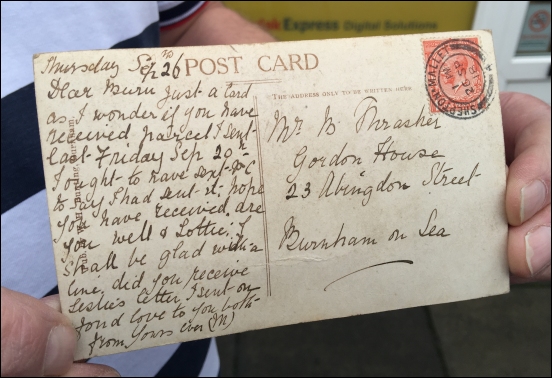 Kodak Express Digital Solutions
POST CARD
THE ADDRESS ONLY TO BE WRITTEN HERE
Thursday Sep 26th
Dear Buru Just a Card
as I wonder if you have
received parcel I sent
last Friday Sep 20th
I ought to have sent P.C
to say I had sent it. hope
you have received are
you well & Lottie. I
shall be glad with a
line. did you receive
Leslie's letter, I sent on
fond love to you both
from yours ever (M)
Mr B Thrasher
Gordon House
23 Abingdon Street
Burnham on Sea
SHEPTON MALLET